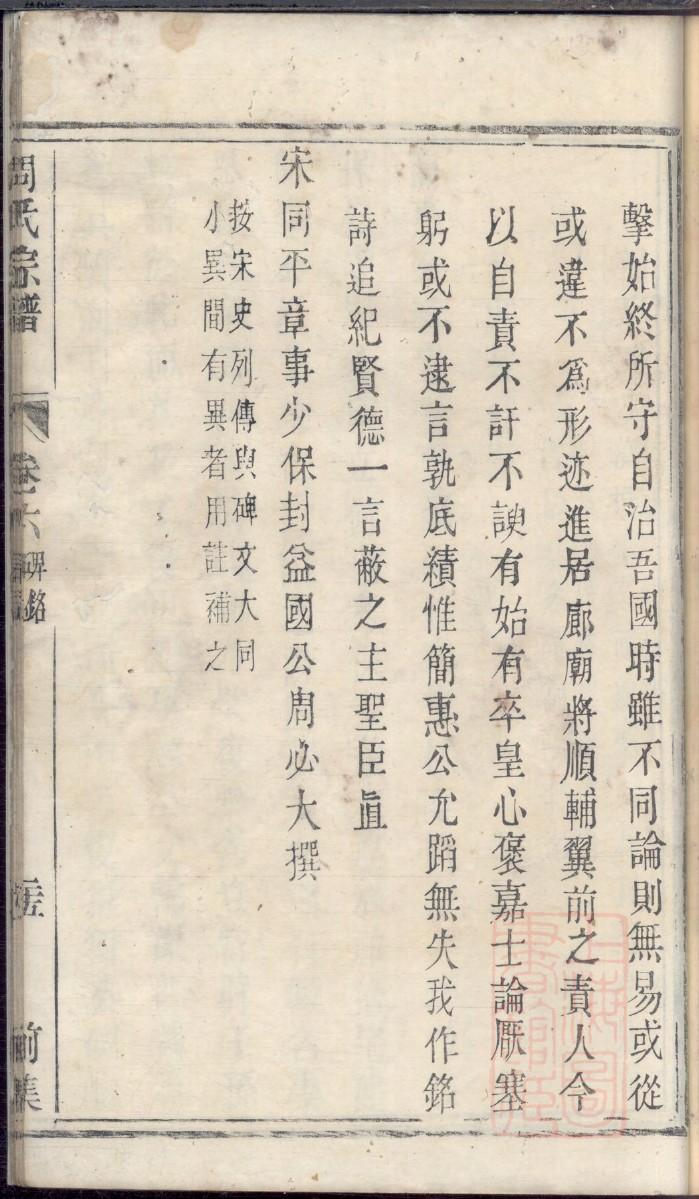 擊始終所守自治吾國時雖不同論則無易或從
或違不爲形迹進居廊廟將順輔翼前之責人今
以自責不訐不諛有始有卒皇心褒嘉士論厭塞
躬或不逮言孰底績惟簡惠公允蹈無失我作銘
詩追紀賢德一言蔽之主聖臣直
宋同平章事少保封益國公周必大撰
按宋史列傳與碑文大同
小異間有異者用註補之
周氏宗譜
卷之六
碑銘
前集